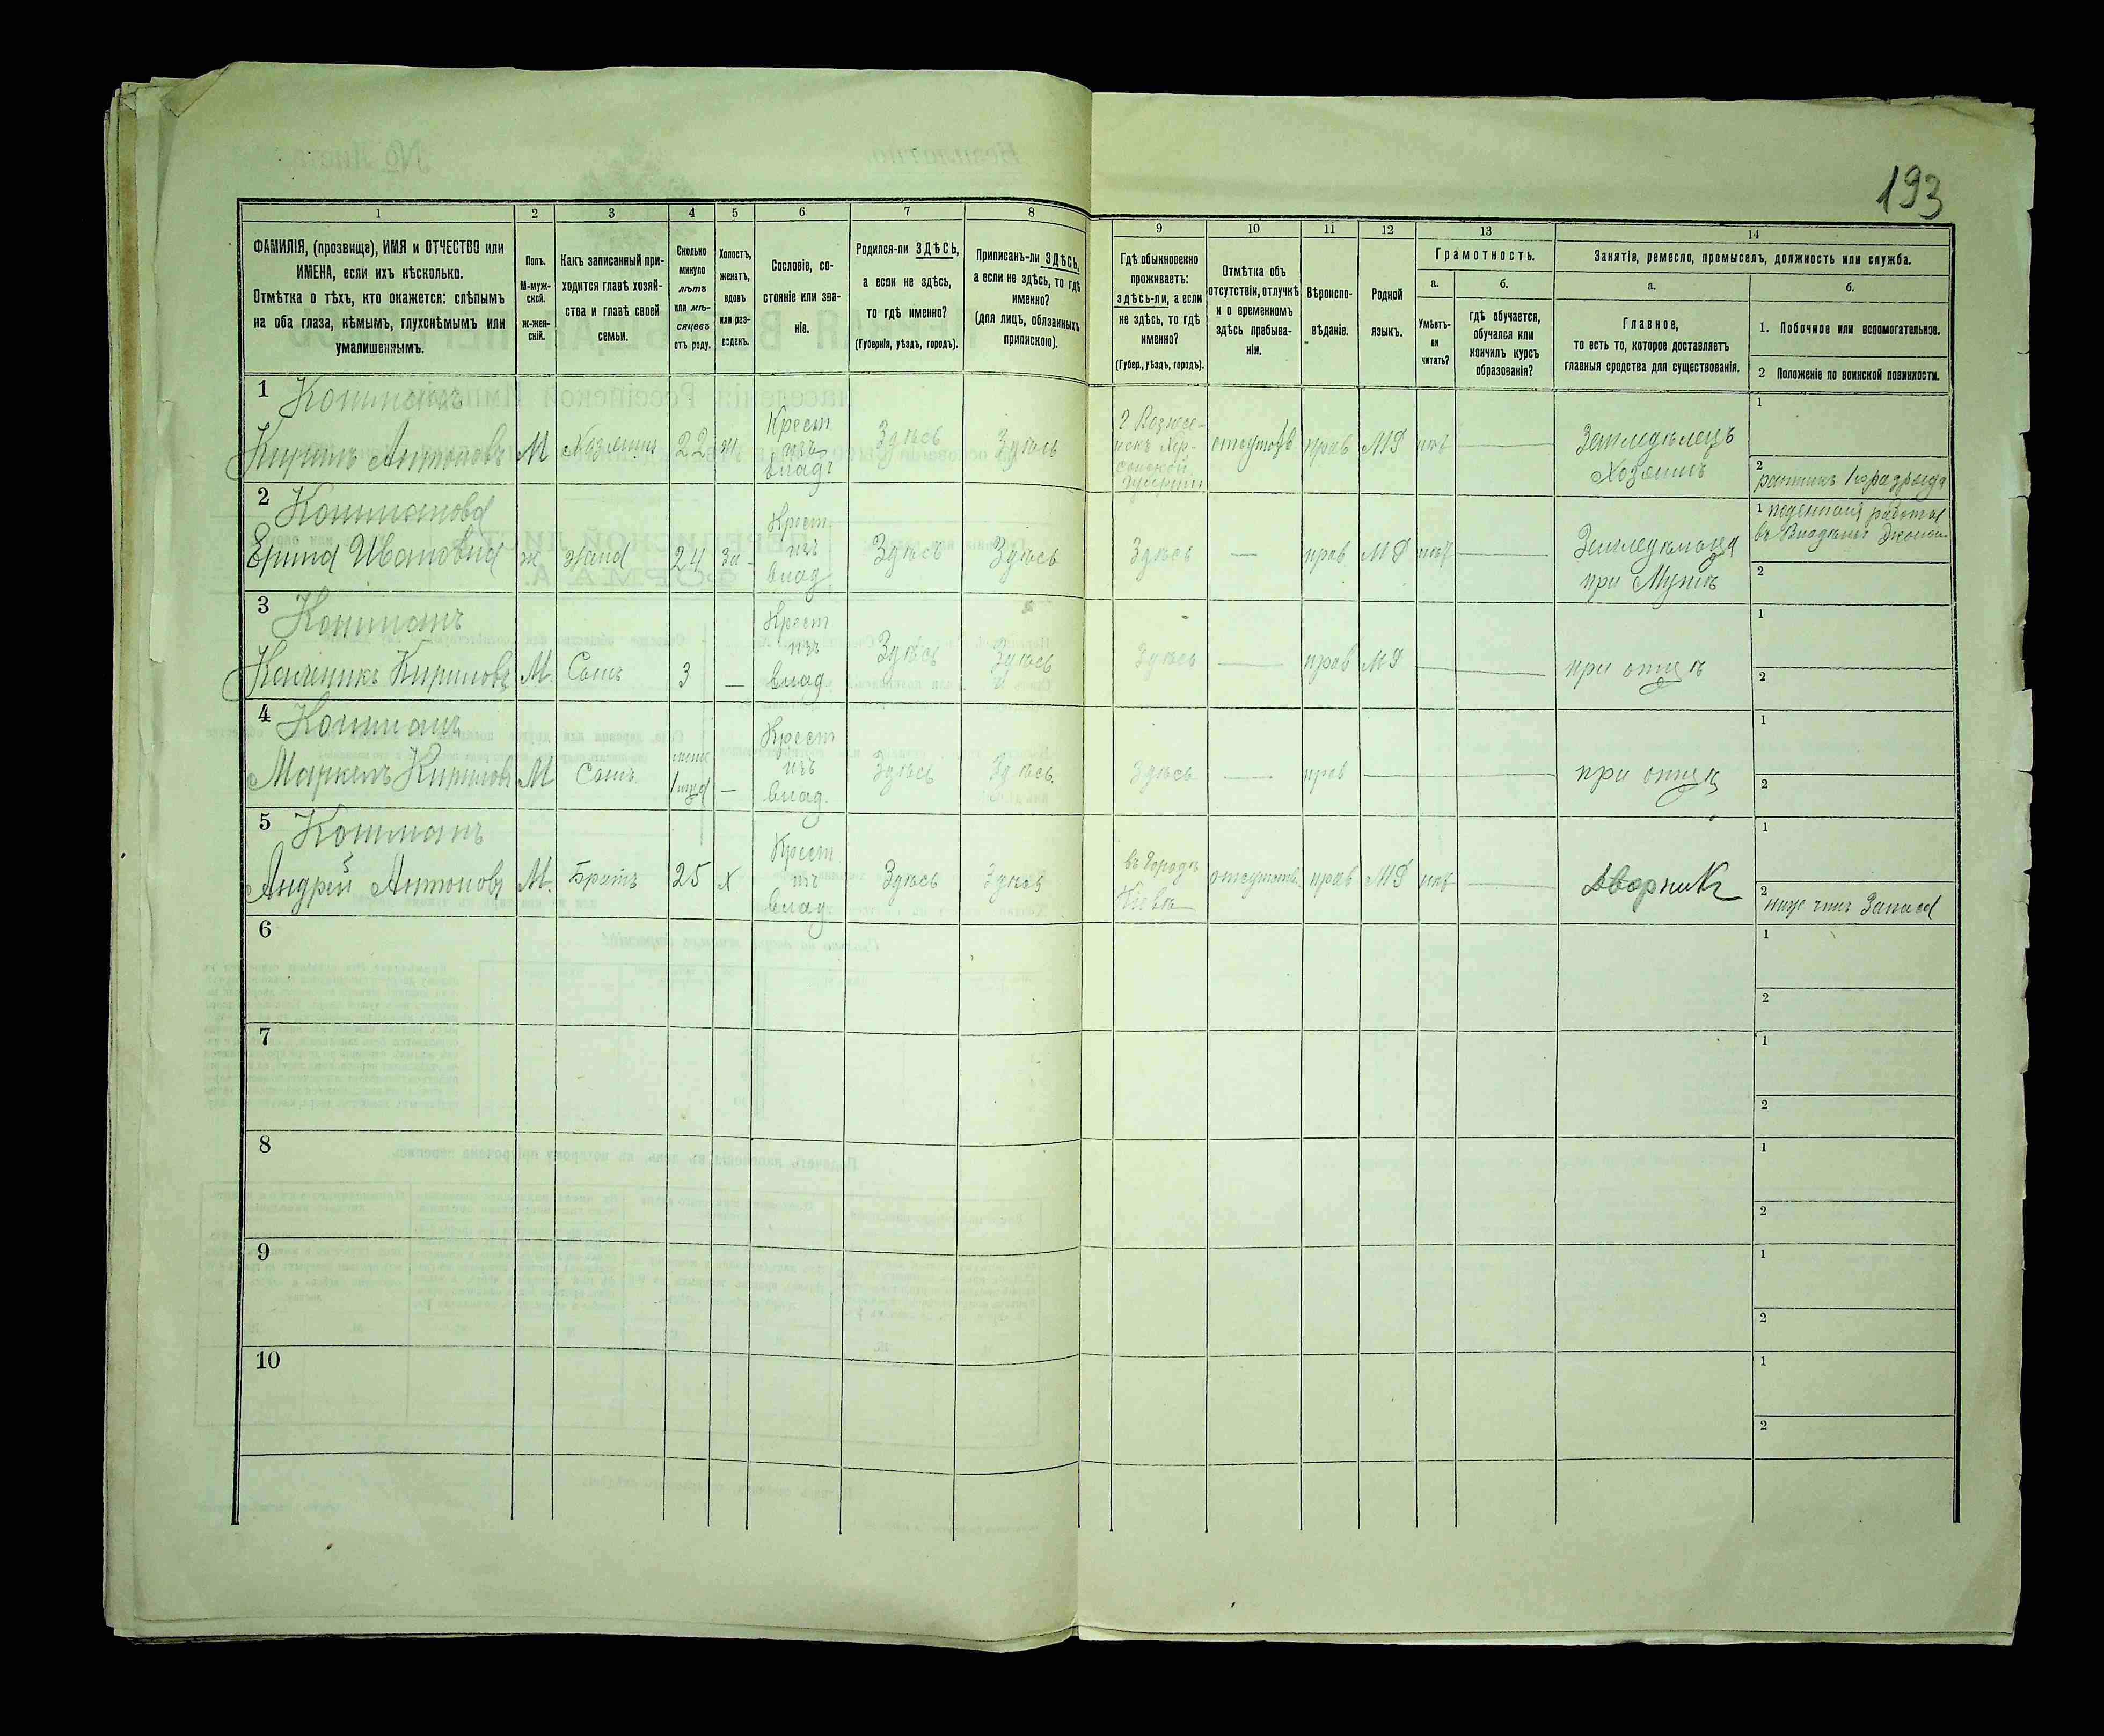 193
1 2 3 4 5 6 7 8 9 10 11 12 13 14
ФАМИЛІЯ, (прозвище), ИМЯ и ОТЧЕСТВО или
ИМЕНА, если ихъ нѣсколько.
Отмѣтка о тѣхъ, кто окажется: слѣпымъ
на оба глаза, нѣмымъ, глухонѣмымъ или
умалишеннымъ.
Полъ.
М-муж-
ской.
ж-жен-
скій.
Какъ записанный при-
ходится главѣ хозяй-
ства и главѣ своей
семьи.
Сколько
минуло
лѣтъ
или мѣ-
сяцевъ
отъ роду.
Холостъ,
женатъ,
вдовъ
или раз-
веденъ.
Сословіе, со-
стояніе или зва-
ніе.
Родился-ли ЗДѢСЬ,
а если не здѣсь,
то гдѣ именно?
(Губернія, уѣздъ, городъ).
Приписанъ-ли ЗДѢСЬ,
а если не здѣсь, то гдѣ
именно?
(для лицъ, обязанныхъ
припискою).
Гдѣ обыкновенно
проживаетъ:
здѣсь-ли, а если
не здѣсь, то гдѣ
именно?
(Губер., уѣздъ, городъ).
Отмѣтка объ
отсутствіи, отлучкѣ
и о временномъ
здѣсь пребыва-
ніи.
Вѣроиспо-
вѣданіе.
Родной
языкъ.
Грамотность.
а.
Умѣетъ-
ли
читать?
б.
гдѣ обучается,
обучался или
кончилъ курсъ
образованія?
Занятія, ремесло, промыселъ, должность или служба.
а.
Главное,
то есть то, которое доставляетъ
главныя средства для существованія.
б.
1. Побочное или вспомогательное.
2 Положеніе по воинской повинности.
1 Кошманъ
Кирилъ Антоновъ М Хозяинъ 22 ж Крест изъ влад Здѣсь Здѣсь
г Вознесе-
нскъ Хер-
сонской
Губерніи
отсутств прав МР нѣт — Земледѣлецъ
Хозяинъ
1
2 ратникъ 1 разряда
2 Кошманова
Ивановна ж Жена 24 за Крест изъ влад. Здѣсь Здѣсь Здѣсь — прав МР нѣт — Земледѣлица
при Мужѣ
1 поденная работа
2
3 Кошманъ
Кириловъ М. Сынъ 3 — Крест изъ влад. Здѣсь Здѣсь Здѣсь — прав МР — при отцѣ
1
2
4 Кошманъ
Маркелъ Кириловъ М Сынъ — Крест изъ влад. Здѣсь Здѣсь. Здѣсь — прав — при отцѣ
1
2
5 Кошманъ
Андрей Антоновъ М. Братъ 25 х Крест изъ влад Здѣсь Здѣсь
въ Городѣ
Кіевѣ
отсутств. прав МР нѣт — Дворник
1
2 ниж чинъ Запаса
6
1
2
7
1
2
8
1
2
9
1
2
10
1
2